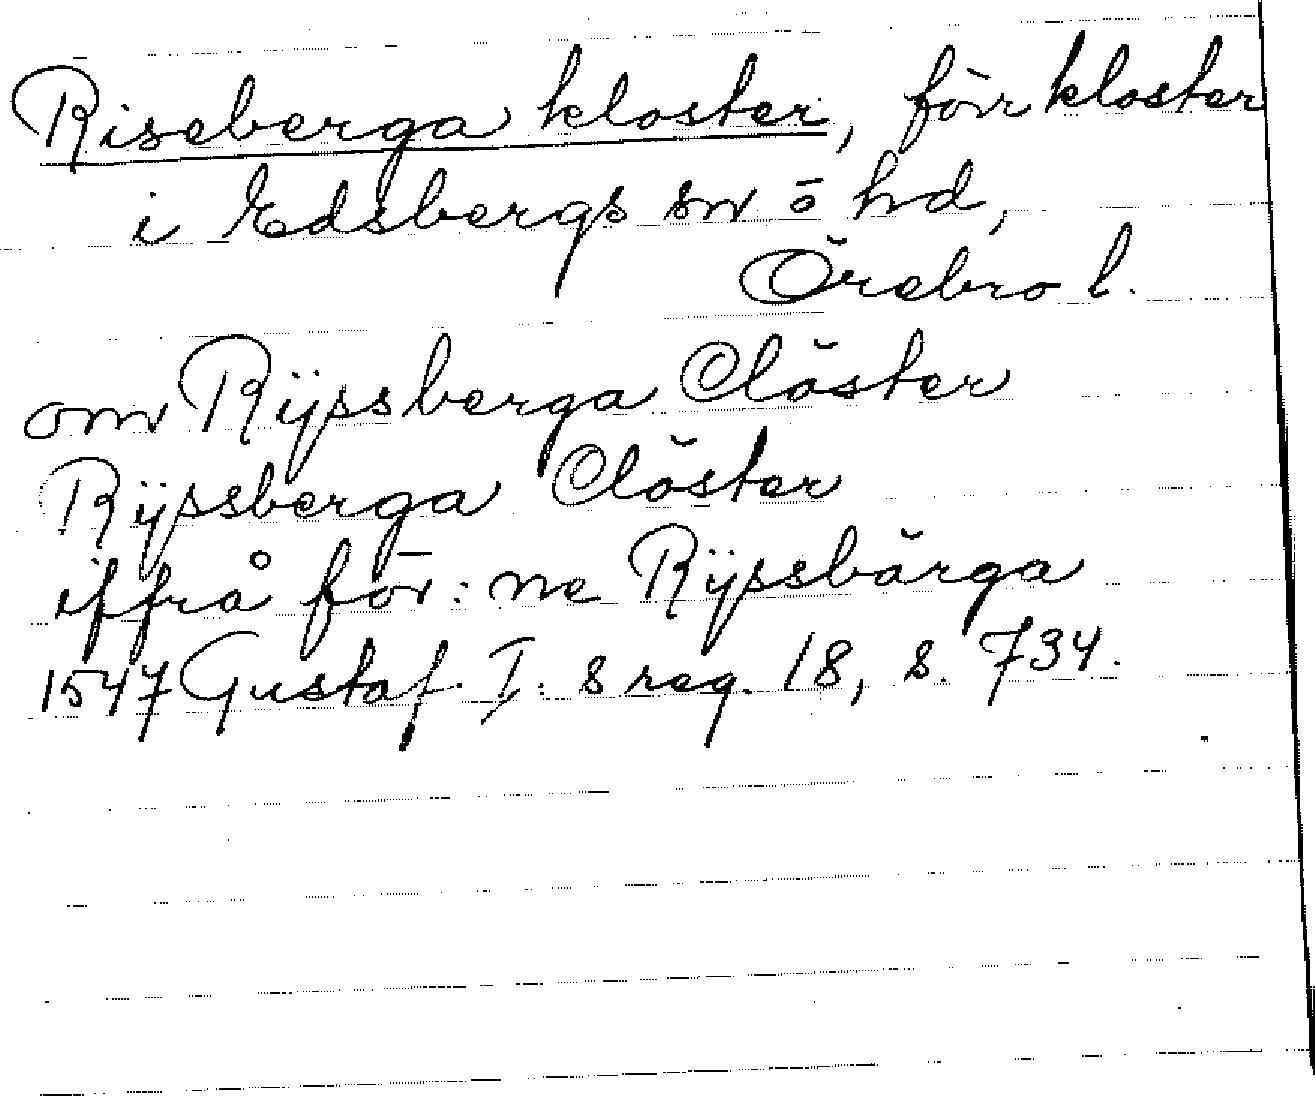 Riseberga kloster, förr kloster
i Edsbergs sn o hd,
Örebro l.
om Rijssberga Clöster
Rijssberga Clöster
iffrå för:ne Rijssbärga
1547 Gustaf I:s reg. 18, s. 734.